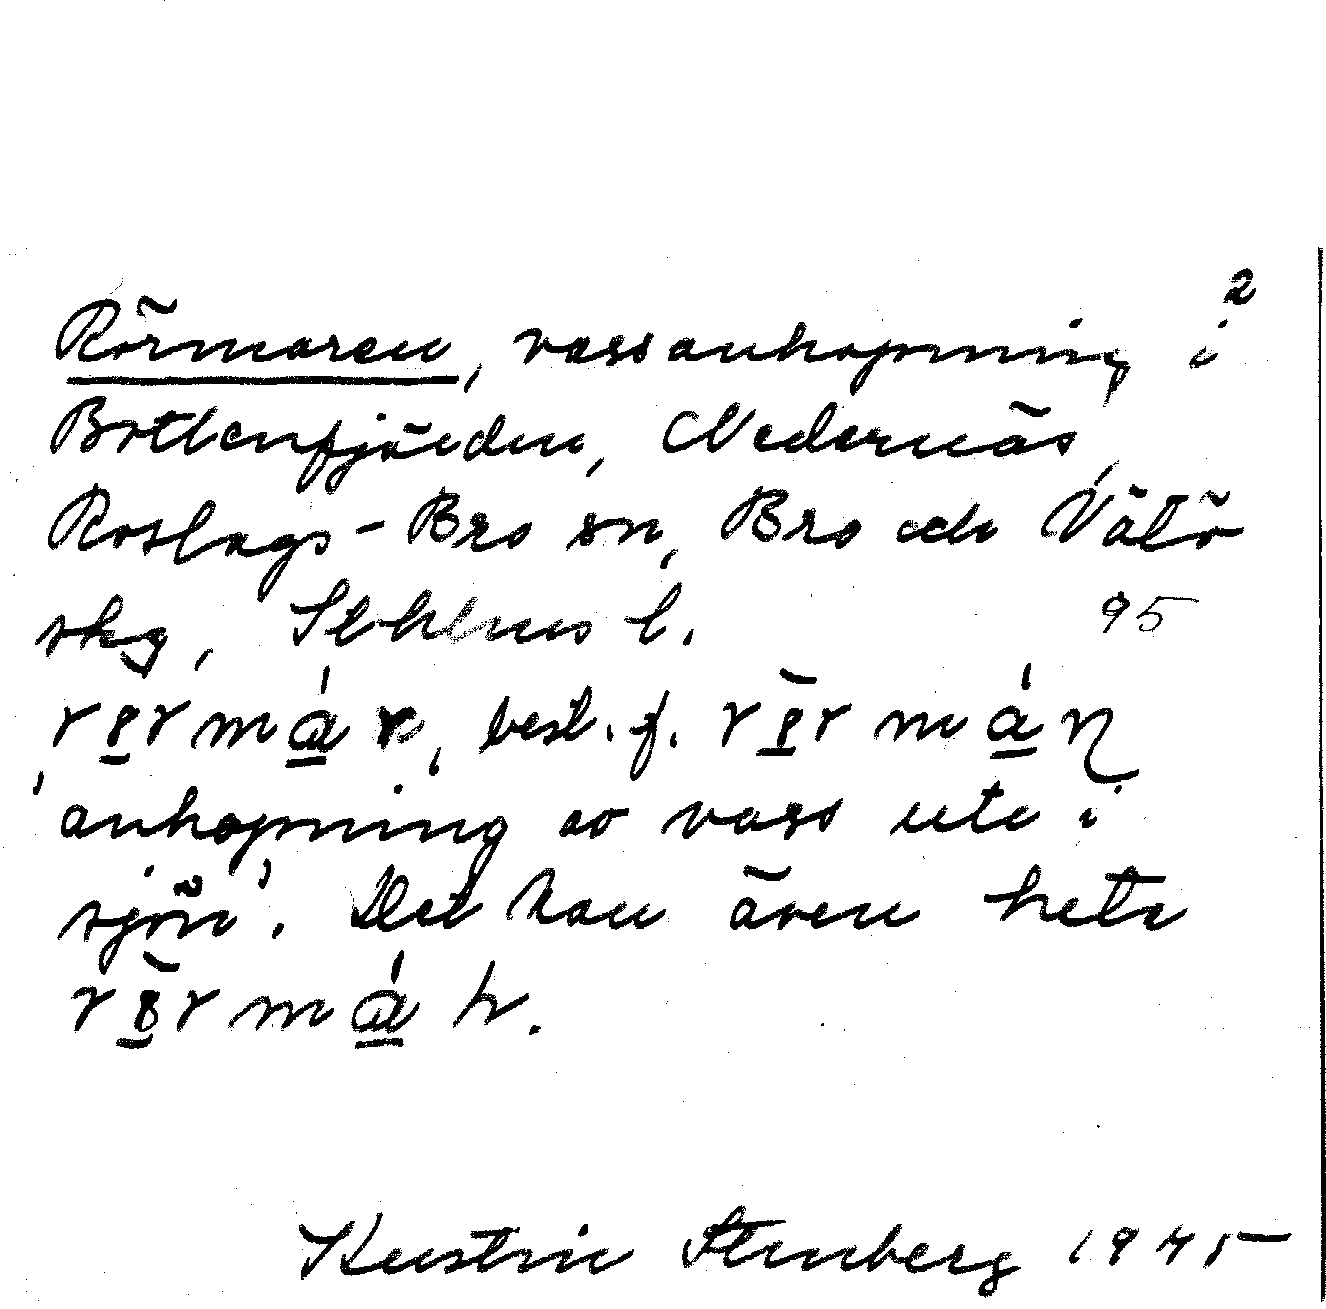 2
Rörmaren, vassanhopning i
Bottenfjärden, Nedernäs,
Roslags-Bro sn, Bro och Vätö
skg, Sthlms l. 95
best. f.
'anhopning av vass ute i
sjön'. Det kan även heta

Kerstin Stenberg 1945